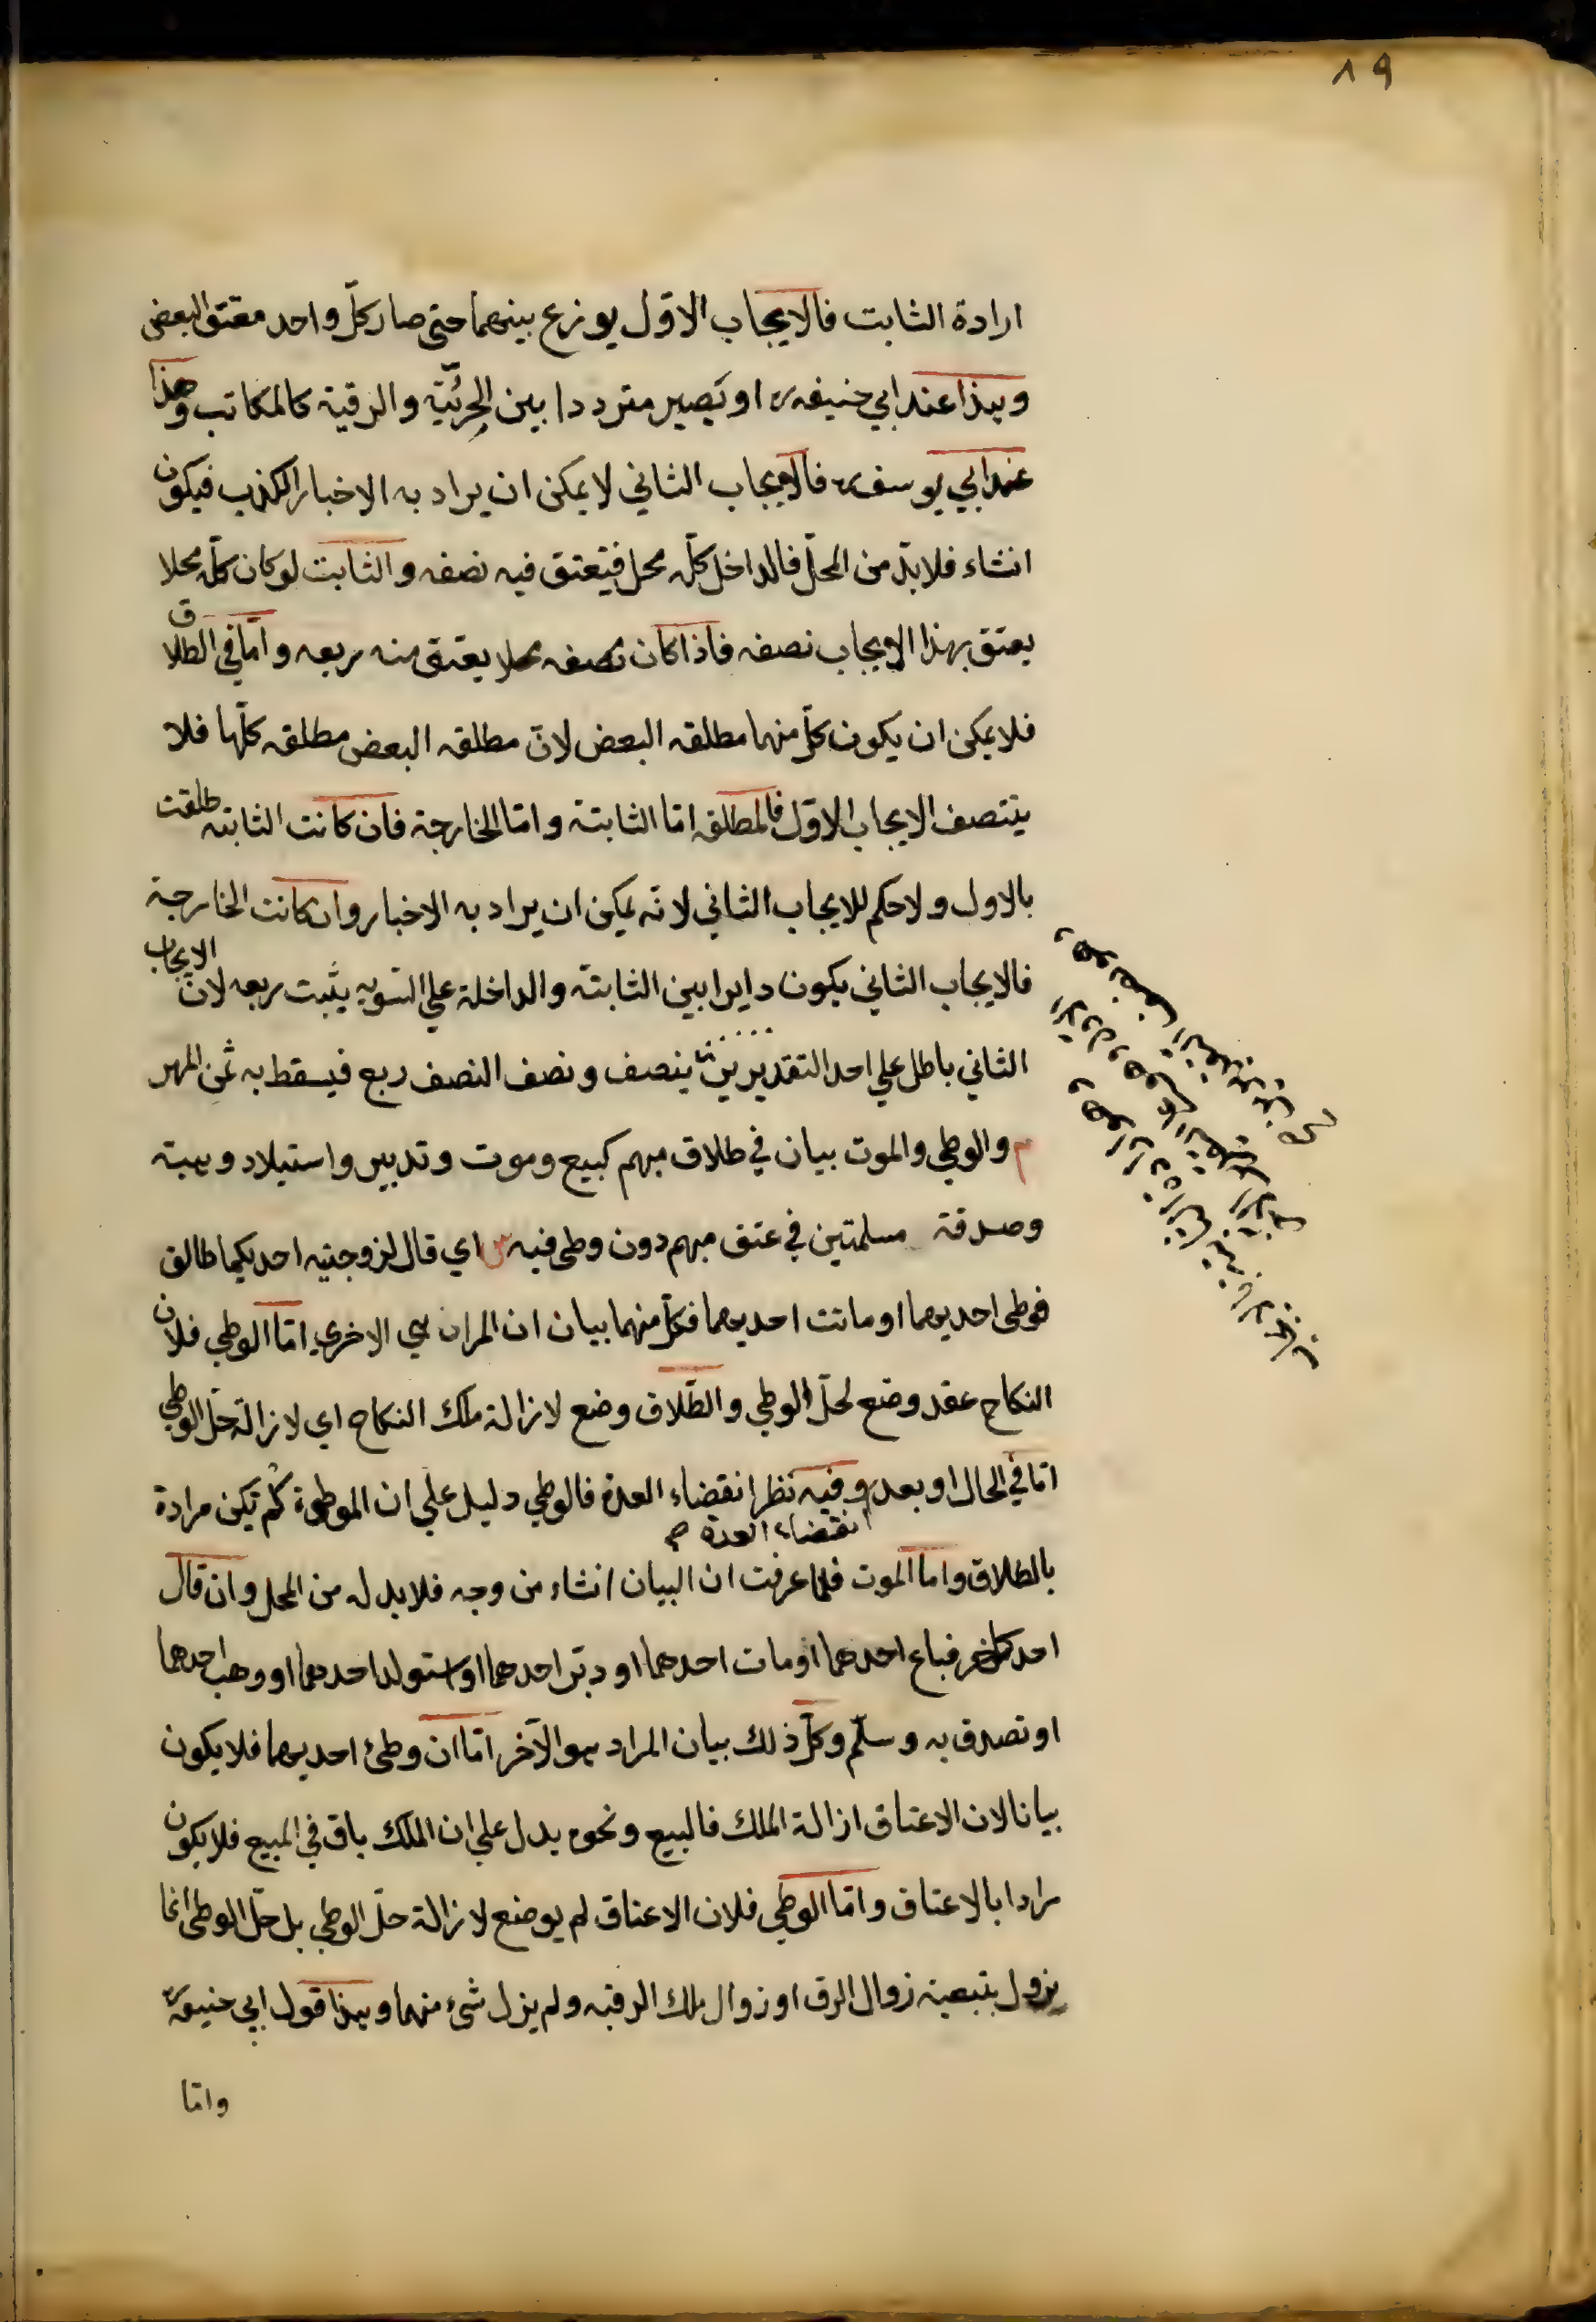 ٨٩
ارادة الثابت فالايجاب الاوّل يوزع بينهما حتى صار كلّ واحد معتق البعض
وهذا عند ابي حنيفه او يصير مترددا بين الحرّيّة والرقية كالمكاتب وهذا
عند ابي يوسف فالايجاب الثاني لا يمكن ان يراد به الاخبار الكذب فيكون
انشاء فلا بدّ من المحلّ فالداخل كلّه محل فيعتق فيه نصفه والثابت لو كان كلّه محلا
يعتق بهذا الايجاب نصفه فاذا كان نصفه محلا يعتق منه ربعه وامّا في الطلاق
فلا يمكن ان يكون كلّ منهما مطلقه البعض لانّ مطلقه البعض مطلقه كلّها فلا
يتنصف الايجاب الاوّل فالمطلقه امّا الثابتة وامّا الخارجة فان كانت الثابته طلقت
بالاول ولا حكم للايجاب الثاني لانّه يمكن ان يراد به الاخبار وان كانت الخارجة
فالايجاب الثاني يكون دايرا بين الثابتة والداخلة علي السّويه يثبت ربعه لانّ الايجاب
الثاني باطل علي احد التقديرين ينصف ونصف النصف ربع فيسقط به ثمن المهر
م والوطي والموت بيان في طلاق مبهم كبيع وموت وتدبير واستيلاد وهبة
وصدقة مسلمتين في عتق مبهم دون وطى فيه ش اي قال لزوجتيه احديكما طالق
فوطى احديهما او ماتت احديهما فكلّ منهما بيان ان المراد هي الاخري امّا الوطي فلان
النكاح عقد وضع لحلّ الوطي والطّلاق وضع لازالة ملك النكاح اي لازالة حلّ الوطي
امّا في الحال او بعد وفيه نظر انقضاء العدة فالوطي دليل علي ان الموطوة لم تكن مرادة
انقضاء العدة صح
بالطلاق واما الموت فلما عرفت ان البيان انشاء من وجه فلا بد له من المحل وان قال
احدكما حر فباع احدهما او مات احدهما او دبّر احدهما او استولد احدهما او وهب احدهما
او تصدق به وسلّم وكلّ ذلك بيان المراد هو الآخر امّا ان وطئ احديهما فلا يكون
بيانا لان الاعتاق ازالة الملك فالبيع ونحوه يدل علي ان الملك باق في المبيع فلا يكون
مرادا بالاعتاق وامّا الوطي فلان الاعتاق لم يوضع لازالة حلّ الوطي بل حلّ الوطى انما
يزول بتبعية زوال الرق او زوال ملك الرقبه ولم يزل شئ منهما وهذا قول ابي حنيفه
وامّا